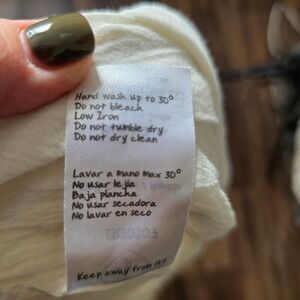 Hand wash up to 30°
Do not bleach
Low Iron
Do not tumble dry
Do not dry clean
Lavar a mano max 30°
No usar lejía
Baja plancha
No usar secadora
No lavar en seco
Keep away from